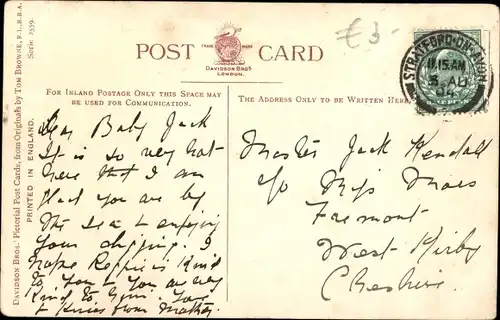 £3-
POST CARD
TRADE MARK
DAVIDSON BROS
LONDON.
FOR INLAND POSTAGE ONLY THIS SPACE MAY
BE USED FOR COMMUNICATION.
THE ADDRESS ONLY TO BE WRITTEN HERE.
STRATFORD-ON-AVON
11.15 AM
AU
04
Dear Baby Jack
It is so very hot
here that I am
glad you are by
the sea & enjoying
your digging. I
hope Reggie is kind
to you & you are very
kind to him. Love
& kisses from Mother.
Master Jack Kendall
c/o Miss Moss
Fremont
West Kirby
Cheshire
DAVIDSON BROS.' Pictorial Post Cards, from Originals by TOM BROWNE, R.I., R.B.A.
Serie 2559.
PRINTED IN ENGLAND.